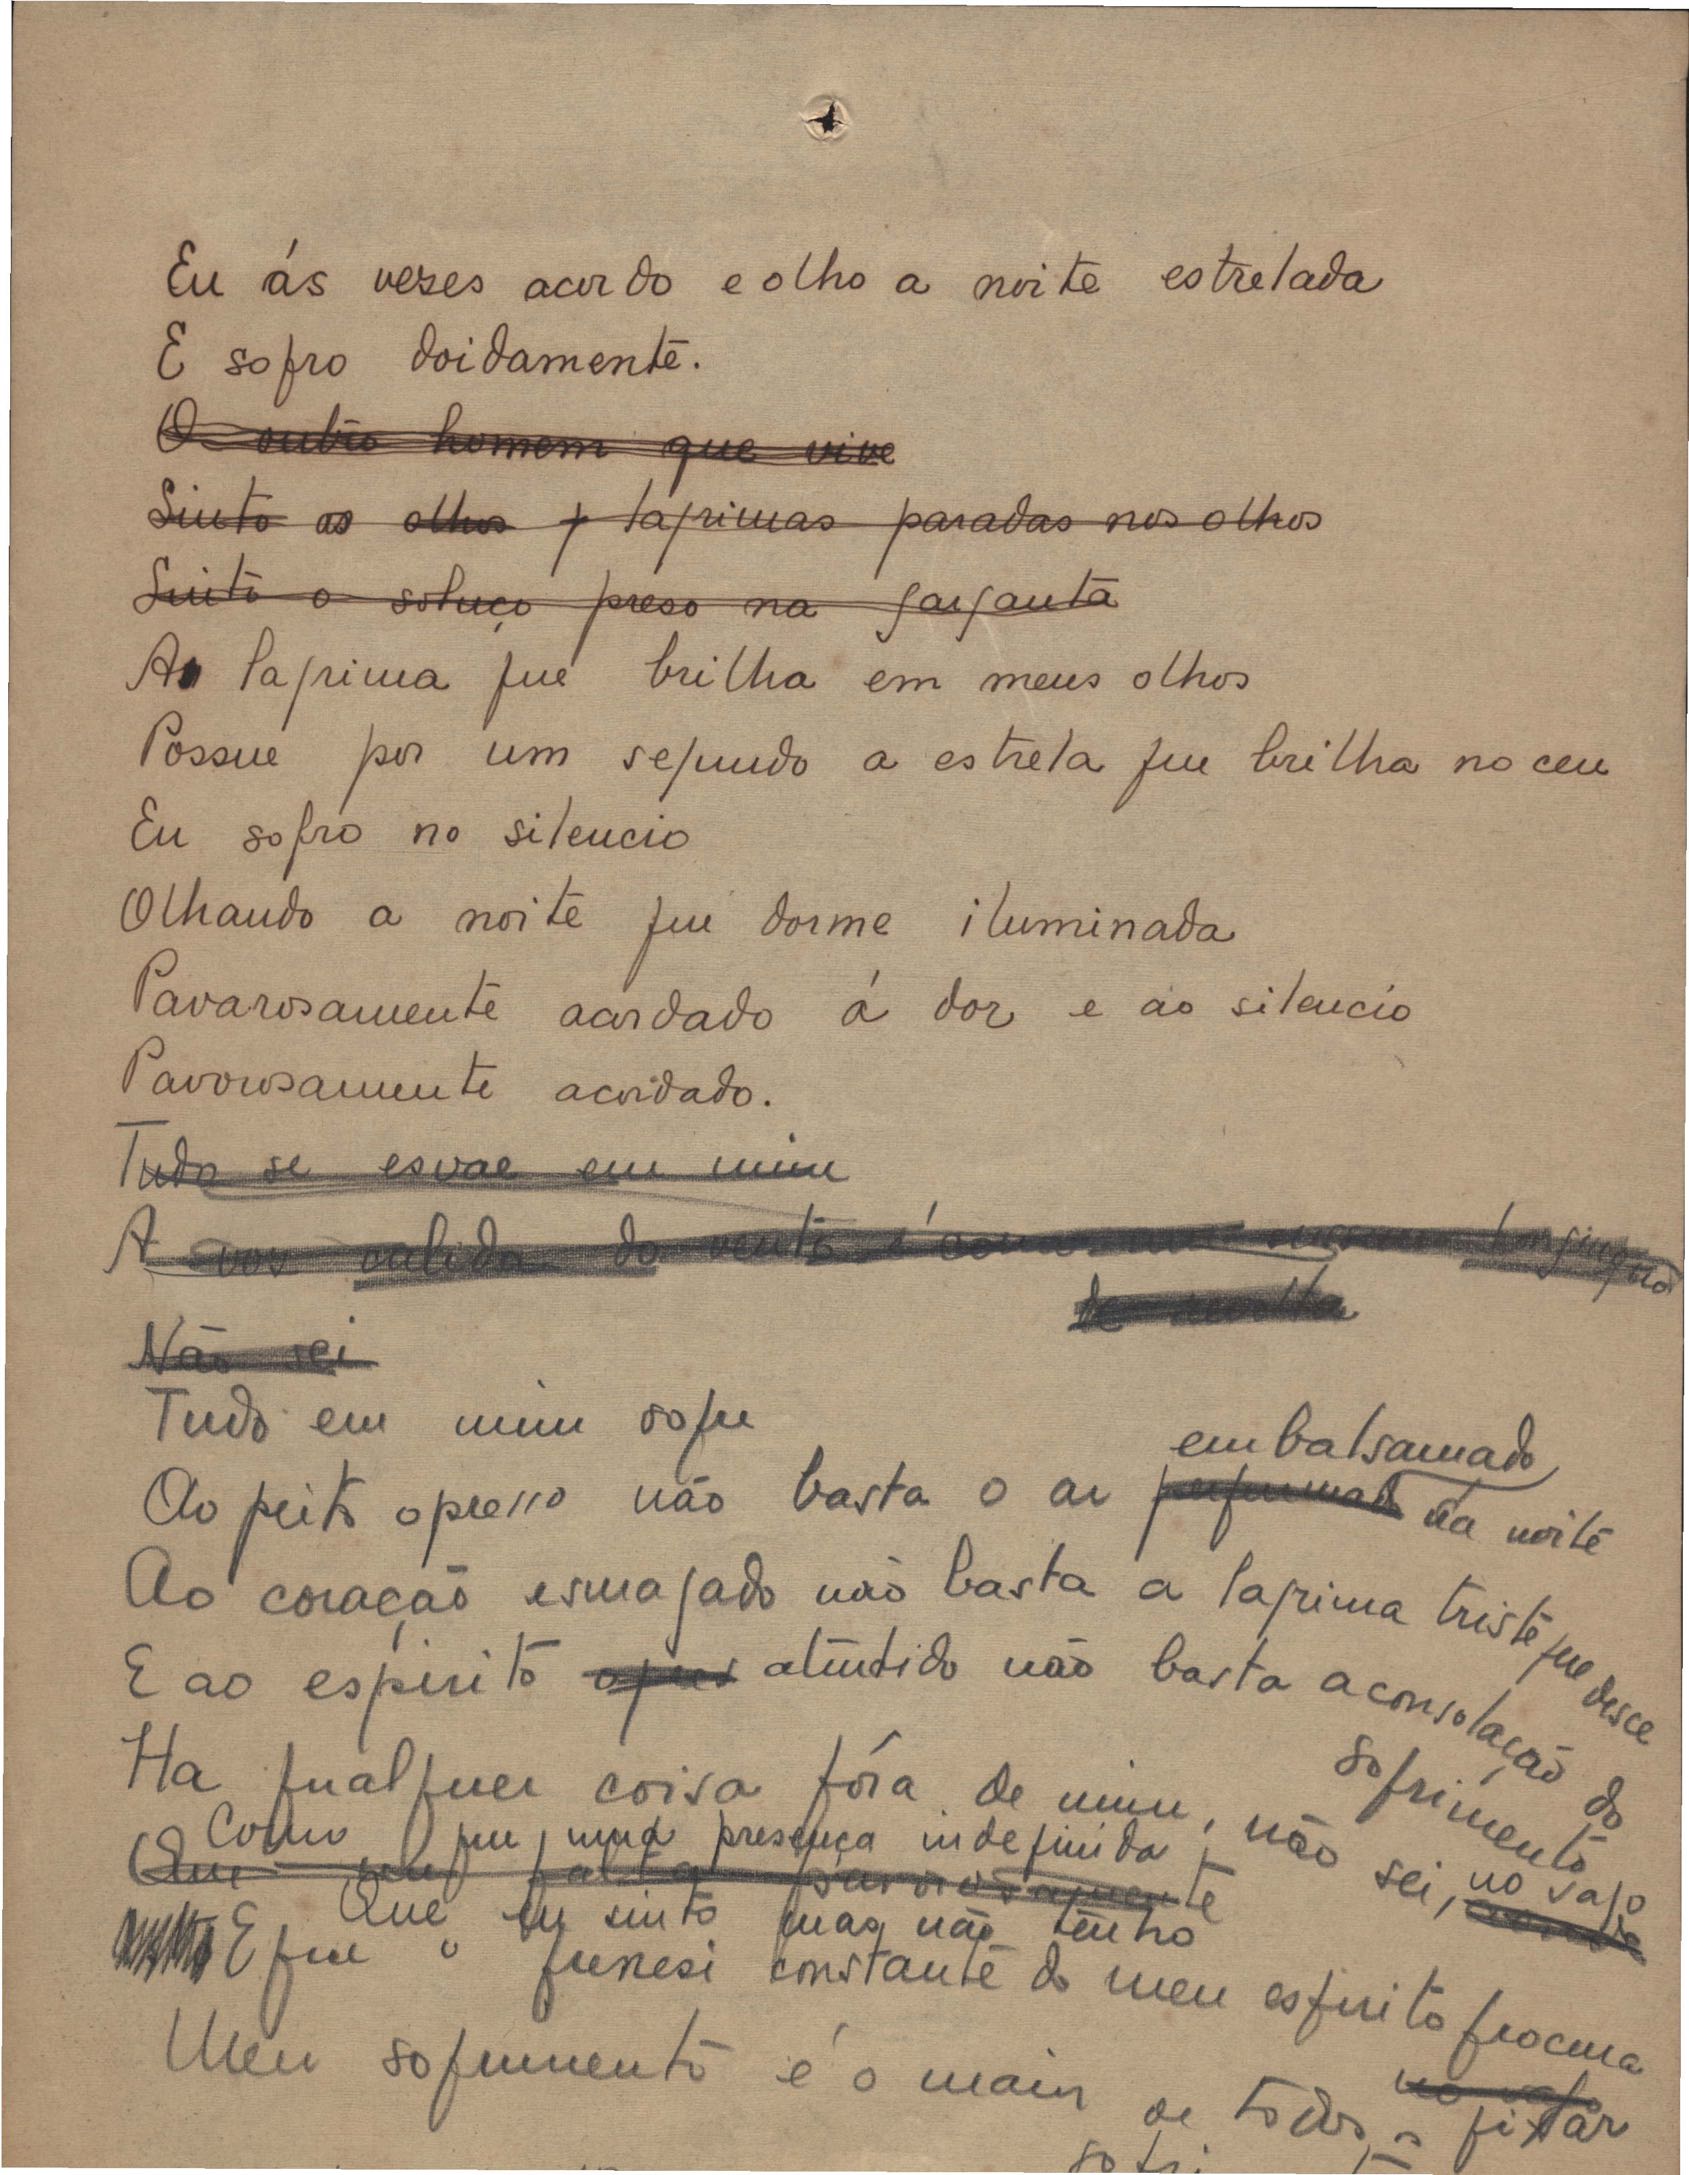 Eu ás vezes acordo e olho a noite estrelada
E sofro doidamente.
O outro homem que vive
Sinto os olhos lagrimas paradas nos olhos
Sinto o soluço preso na garganta
A lagrima que brilha em meus olhos
Possue por um segundo a estrela que brilha no ceu
Eu sofro no silencio
Olhando a noite que dorme iluminada
Pavarosamente acordado á dor e ao silencio
Pavorosamente acordado.
Tudo se esvae em mim
A voz calida do vento é longinquo
de
Não sei
Tudo em mim sofre
embalsamado
Ao peito opresso não basta o ar perfumado da noite
Ao coração esmagado não basta a lagrima triste que desce
E ao espirito aturdido não basta a consolação do sofrimento
Ha qualquer coisa fóra de mim, não sei, no vago
Como que uma presença indefinida
Que falta pavorosamente
Que eu sinto mas não tenho
E que o frenesi constante do meu espirito procura fixar
no vago
Meu sofrimento é o maior de todos os
sofri